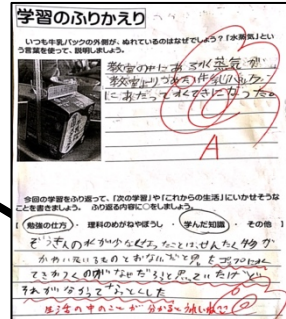 学習のふりかえり
いつも牛乳パックの外側が、ぬれているのはなぜでしょう？「水蒸気」とい
う言葉を使って、説明しましょう。
教室の中にある水蒸気が、
教室よりつめたい牛乳パック
にあたって水てきになった。
A
今回の学習をふり返って、「次の学習」や「これからの生活」にいかせそうな
ことを書きましょう。 ふり返る内容に○をしましょう。
【 勉強の仕方 ・ 理科のめがねやぼうし ・ 学んだ知識 ・ その他 】
ぞうきんの水が少なくなったことは、せんたく物が
かわいているものとおなじだと
できるのがなぜだろうと思っていたけど
それが分かってなっとくした
生活の中のことが分かると嬉しいね